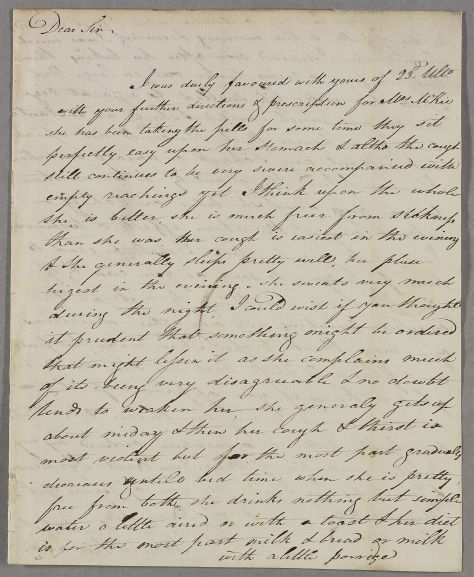 Dear Sir
I was duly favoured with yours of 23d Ullo
with your further directions & prescription for Mrs McKie
she has been taking the pills for some time they sit
perfectly easy upon her stomach & altho the cough
still continues to be very severe accompanied with
empty reachings yet I think upon the whole
she is better she is much freer from sickness
than she was her cough is easiest in the evening
& she generally sleeps pretty well, her pulse
higest in the evening. she sweats very much
during the night. I could wish if you thought
it prudent that something might be ordered
that might lessen it as she complains much
of its being very disagreeable & no doubt
tends to weaken her she generaly gets up
about miday & then her cough & thirst is
most violent but for the most part gradualy
decreases untill bed time when she is pretty
free from both, she drinks nothing but simple
water a little aired or with a toast & her diet
is for the most part milk & bread or milk
with a little porridge